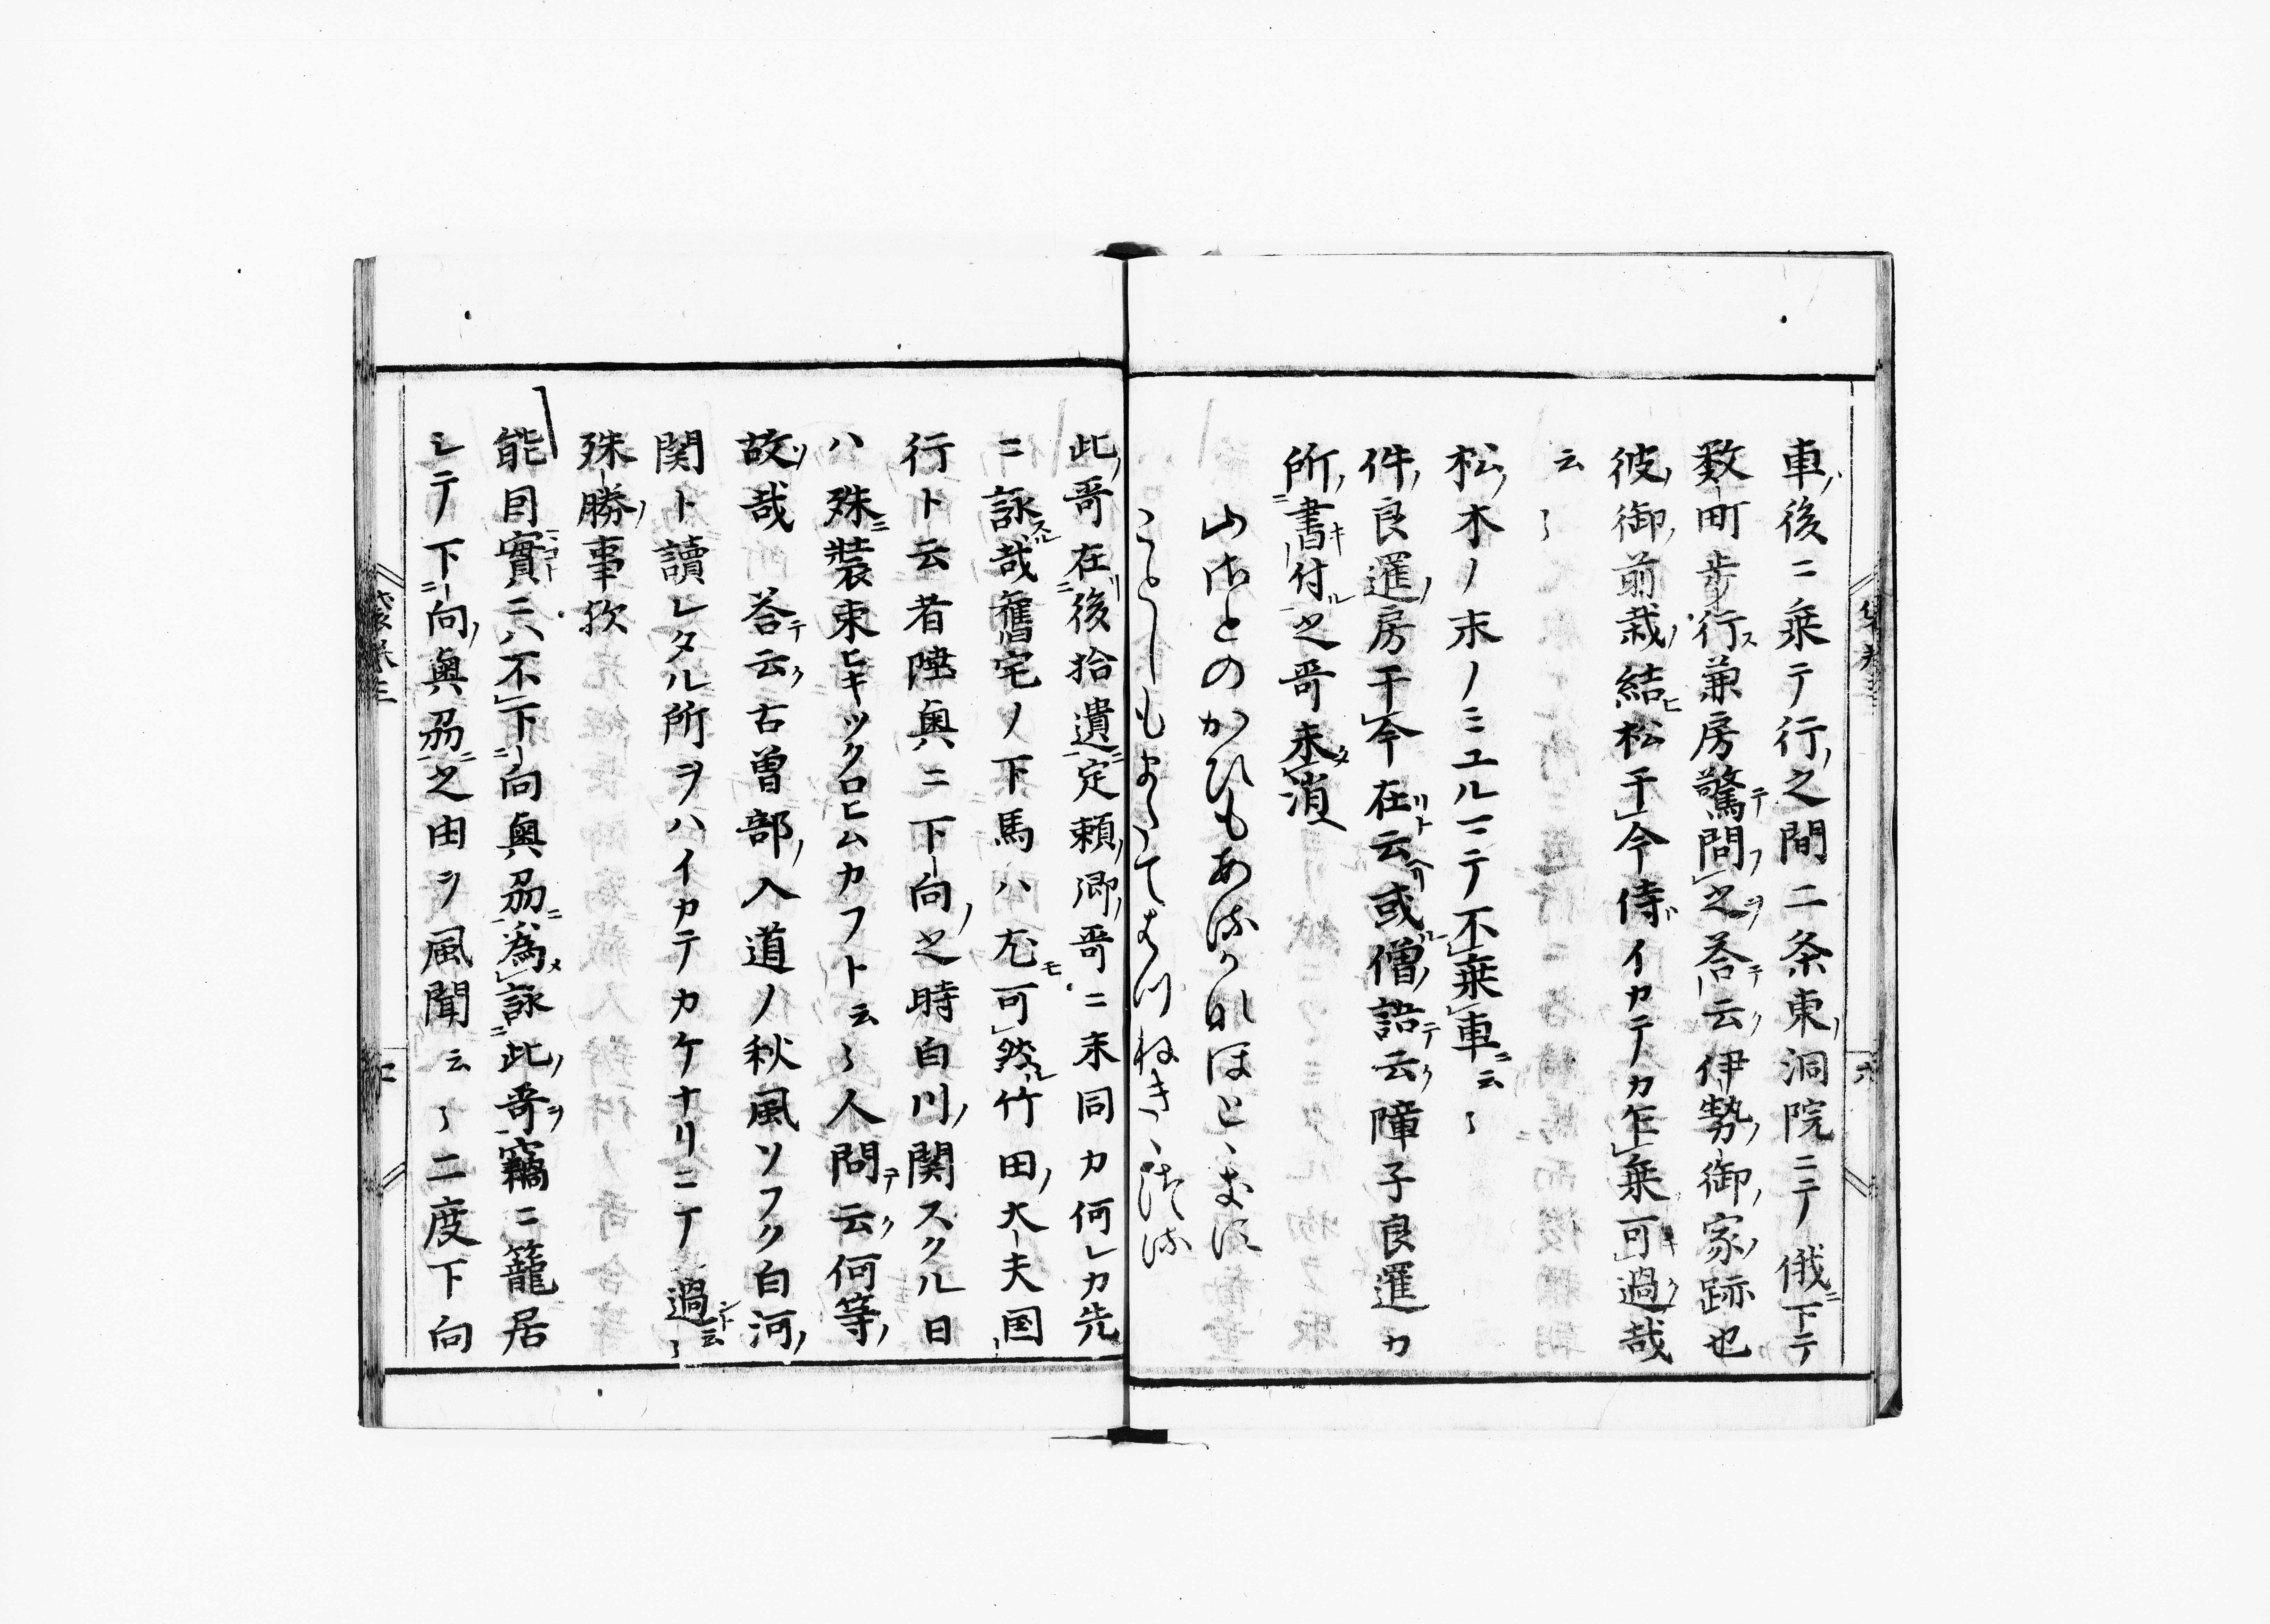 車後ニ乗テ行之間二条東洞院ニテ俄下テ
数町歩行兼房驚問之荅云伊勢御家跡也
彼御前栽結松于今侍イカテカ乍乗可過哉
云〻
松木ノ末ノミユルニテ不乗車云〻
件良暹房于今在云或僧語云障子良暹カ
所書付之哥未消
山さとのかひもあるかなほとゝきす
ことしもまたてはつねきゝつる
此哥在後拾遺定頼卿哥ニ末同カ何レカ先
ニ詠哉舊宅ノ下馬ハ尤可然竹田大夫国
行ト云者陸奥ニ下向之時白川関スクル日
ハ殊装束ヒキツクロヒムカフト云〻人問云何等
故哉 荅云古曽部入道ノ秋風ソフク白河
関ト讀レタル所ヲハイカテカケナリニテ過云〻
殊勝事歟
能因實ニハ不下向奥刕為詠此哥竊ニ籠居
シテ下向奥刕之由ヲ風聞云〻二度下向